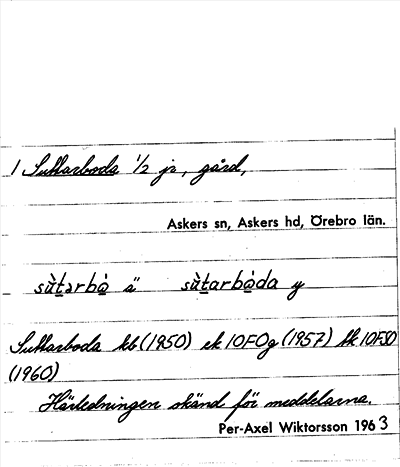 1 Suttarboda 1/2 jr, gård,
Askers sn, Askers hd, Örebro län.
sùt̲ərbò̲ ä sùt̲arbò̲da y
Suttarboda kb (1950) ek 10F0g (1957) tk 10FSO
(1960)
Härledningen okänd för meddelarna.
Per-Axel Wiktorsson 1963